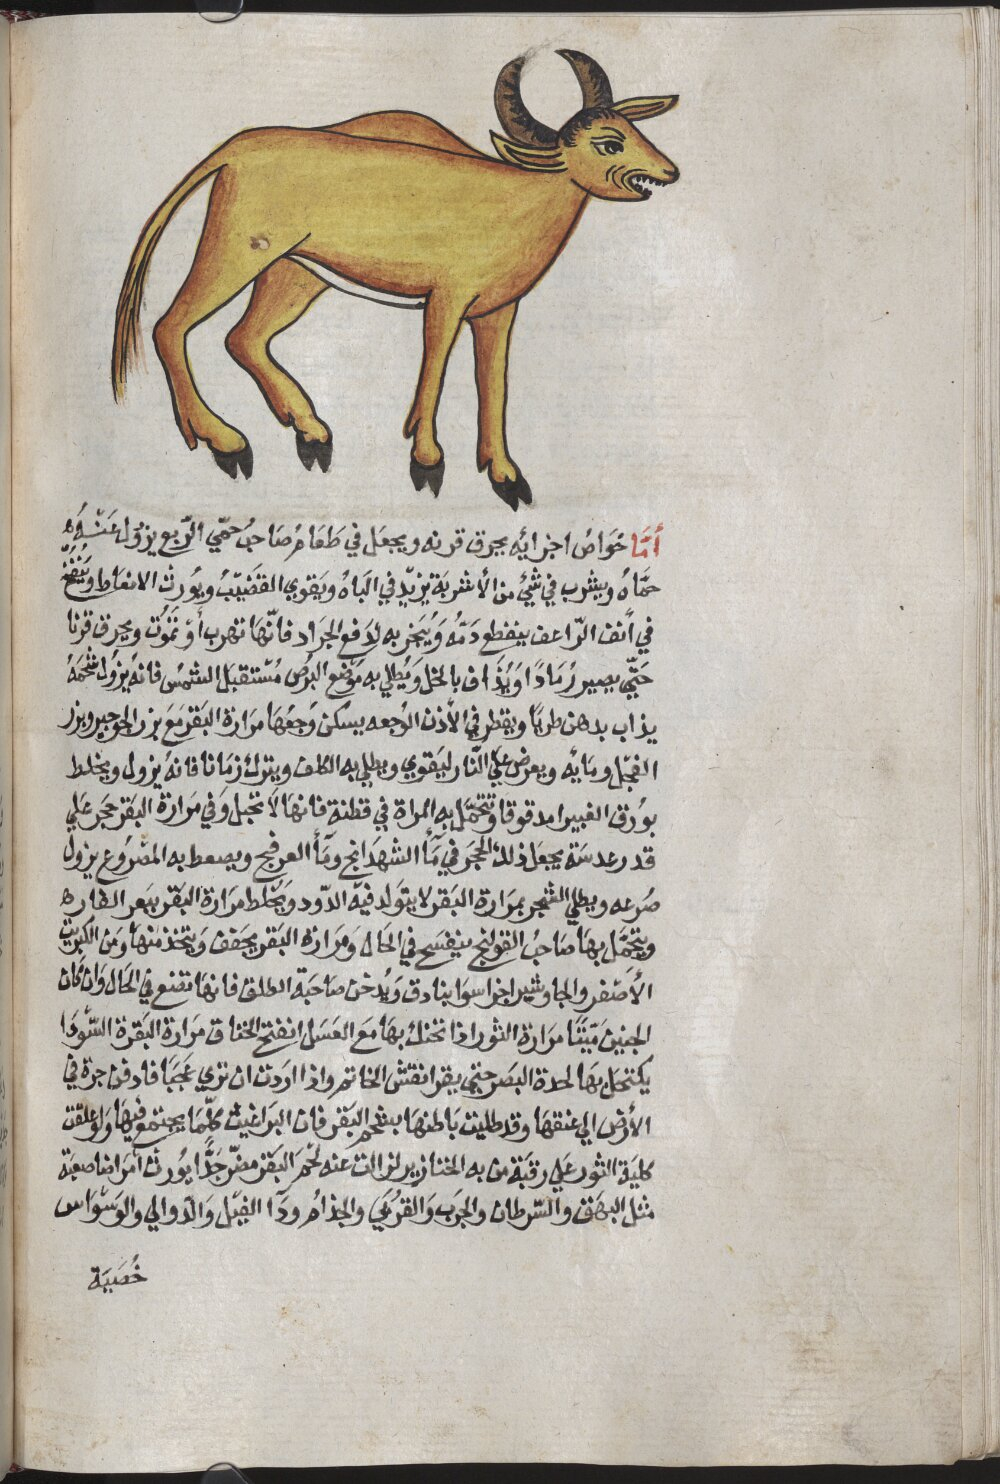 أمّا خواص اجزائه يحرق قرنه ويجعل في طعام صاحب حمّي الربع يزول عنه
حمّاه ويشرب في شئ من الأشربة يزيد في الباه ويقوي القضيب ويورث الانعاظ وينفخ
في أنف الراعف ينقطع دمه ويبخر به لدفع الجراد فانها تهرب أو تموت ويحرق قرنا
حتّي يصير رمادًا ويذاف بالخل ويطلي به موضع البرص مستقبل الشمس فانه يزول شحمه
يذاب بدهن طريا ويقطر في الأذن الوجعه يسكن وجعها مرارة البقر مع بزر الجرجير وبزر
الفجل ومايه ويعرض علي النار ليقوي ويطلي به الكلف ويترك زمانا فانه يزول ويخلط
بورق الغبيرا مدقوقا وتتحمّل به المراة في قطنة فانها لا تحبل وفي مرارة البقر حجر علي
قدر عدسة يجعل ذلك الحجر في مأ الشهدانج ومأ العرفج ويصعط به المصروع يزول
صرعه ويطلي الشجر بمرارة البقر لا يتولد فيه الدّود ويخلط مرارة البقر ببعر الفاره
ويتحمّل بها صاحب القولنج ينفسح في الحال ومرارة البقر يجفف ويتخذ منها ومن الكبريت
الأصفر والجاوشير اجزا سوا بنادق ويدخن صاحبة الطلق فانها تضع في الحال وان كان
الجنين ميّتا مرارة الثور اذا تحنك بها مع العسل انفتح الخناق مرارة البقرة السّودا
يكتحل بها لحدة البصر حتي يقرا نقش الخاتم واذا اردت ان تري عجبا فادفن جرة في
الأرض الي عنقها وقد طليت باطنها بشحم البقر فان البراغيث كلّها يجتمع فيها ولو علقت
كلية الثور علي رقبة من به الخنازير لزالت عنه لحم البقر مضرّ جدًّا يورث أمراضا صعبة
مثل البهق والسّرطان والجرب والقوبي والجذام ودآ الفيل والدوالي والوسواس
خصية